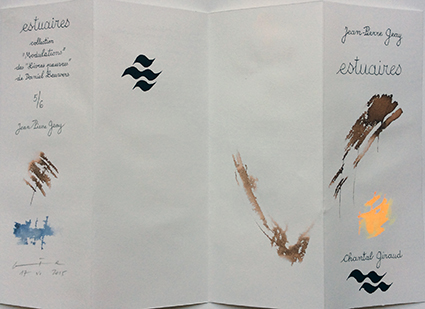 estuaires
collection
"Modulations"
des "Livres pauvres"
de Daniel Leuwers
5/6
Jean-Pierre Geay
2015
Jean-Pierre Geay
estuaires
Chantal Giraud